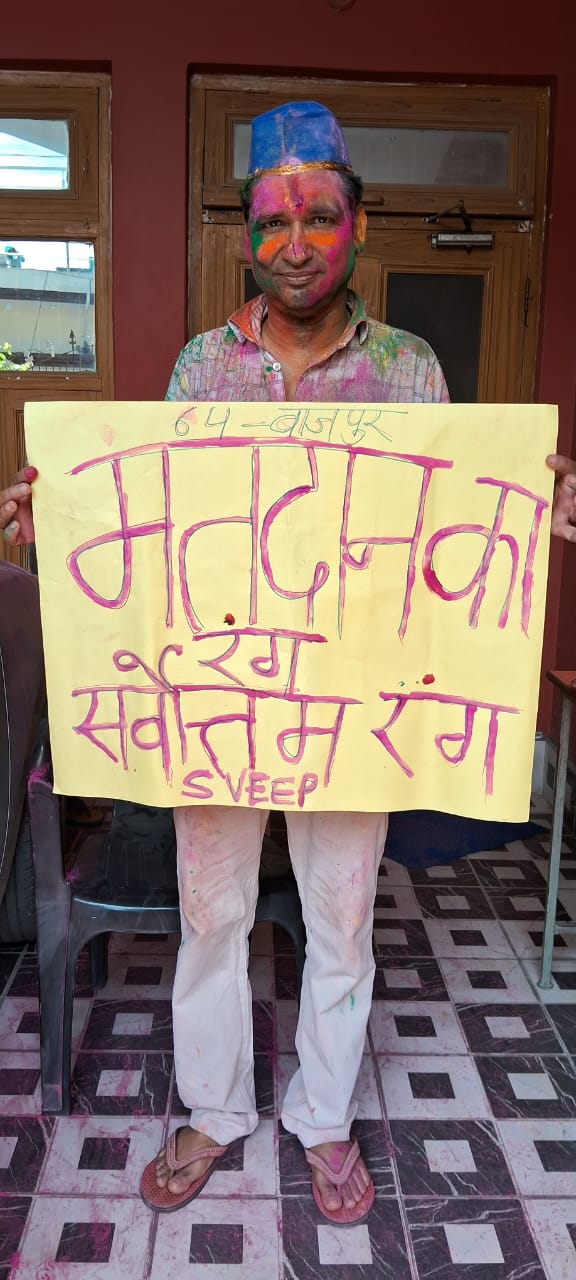 64-बाजपुर
मतदान का
रंग
सर्वोत्तम रंग
SVEEP